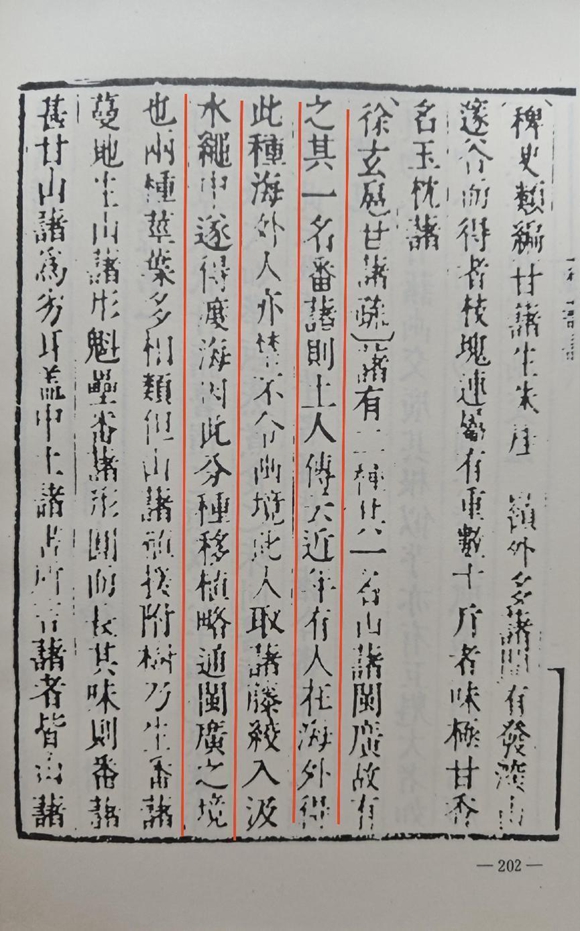 稗史類編甘藷生朱崖 嶺外多藷間有發深山
邃谷而得者枝塊連屬有重數十斤者味極甘香
名玉枕藷
徐玄扈甘藷疏藷有二種其一名山藷閩廣故有
之其一名番藷則土人傳云近年有人在海外得
此種海外人亦禁不令出境此人取藷藤絞入汲
水繩中遂得渡海因此分種移植略通閩廣之境
也兩種莖葉多相類但山藷援附樹乃生番藷
蔓地生山藷形魁壘番藷形圓而長其味則番藷
甚甘山藷為劣耳蓋中土諸書所言藷者皆山藷
—202—